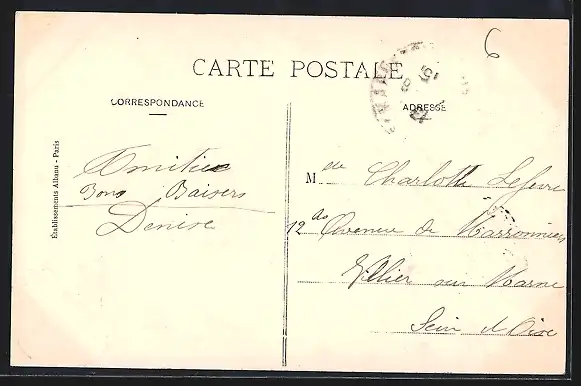 6
CARTE POSTALE
CORRESPONDANCE
ADRESSE
Etablissements Albanu - Paris
Amitiés
Bons Baisers
Denise
Mde Charlotte Lefevre
12 bis Avenue de Marronniers
Villier sur Marne
Sein et Oise